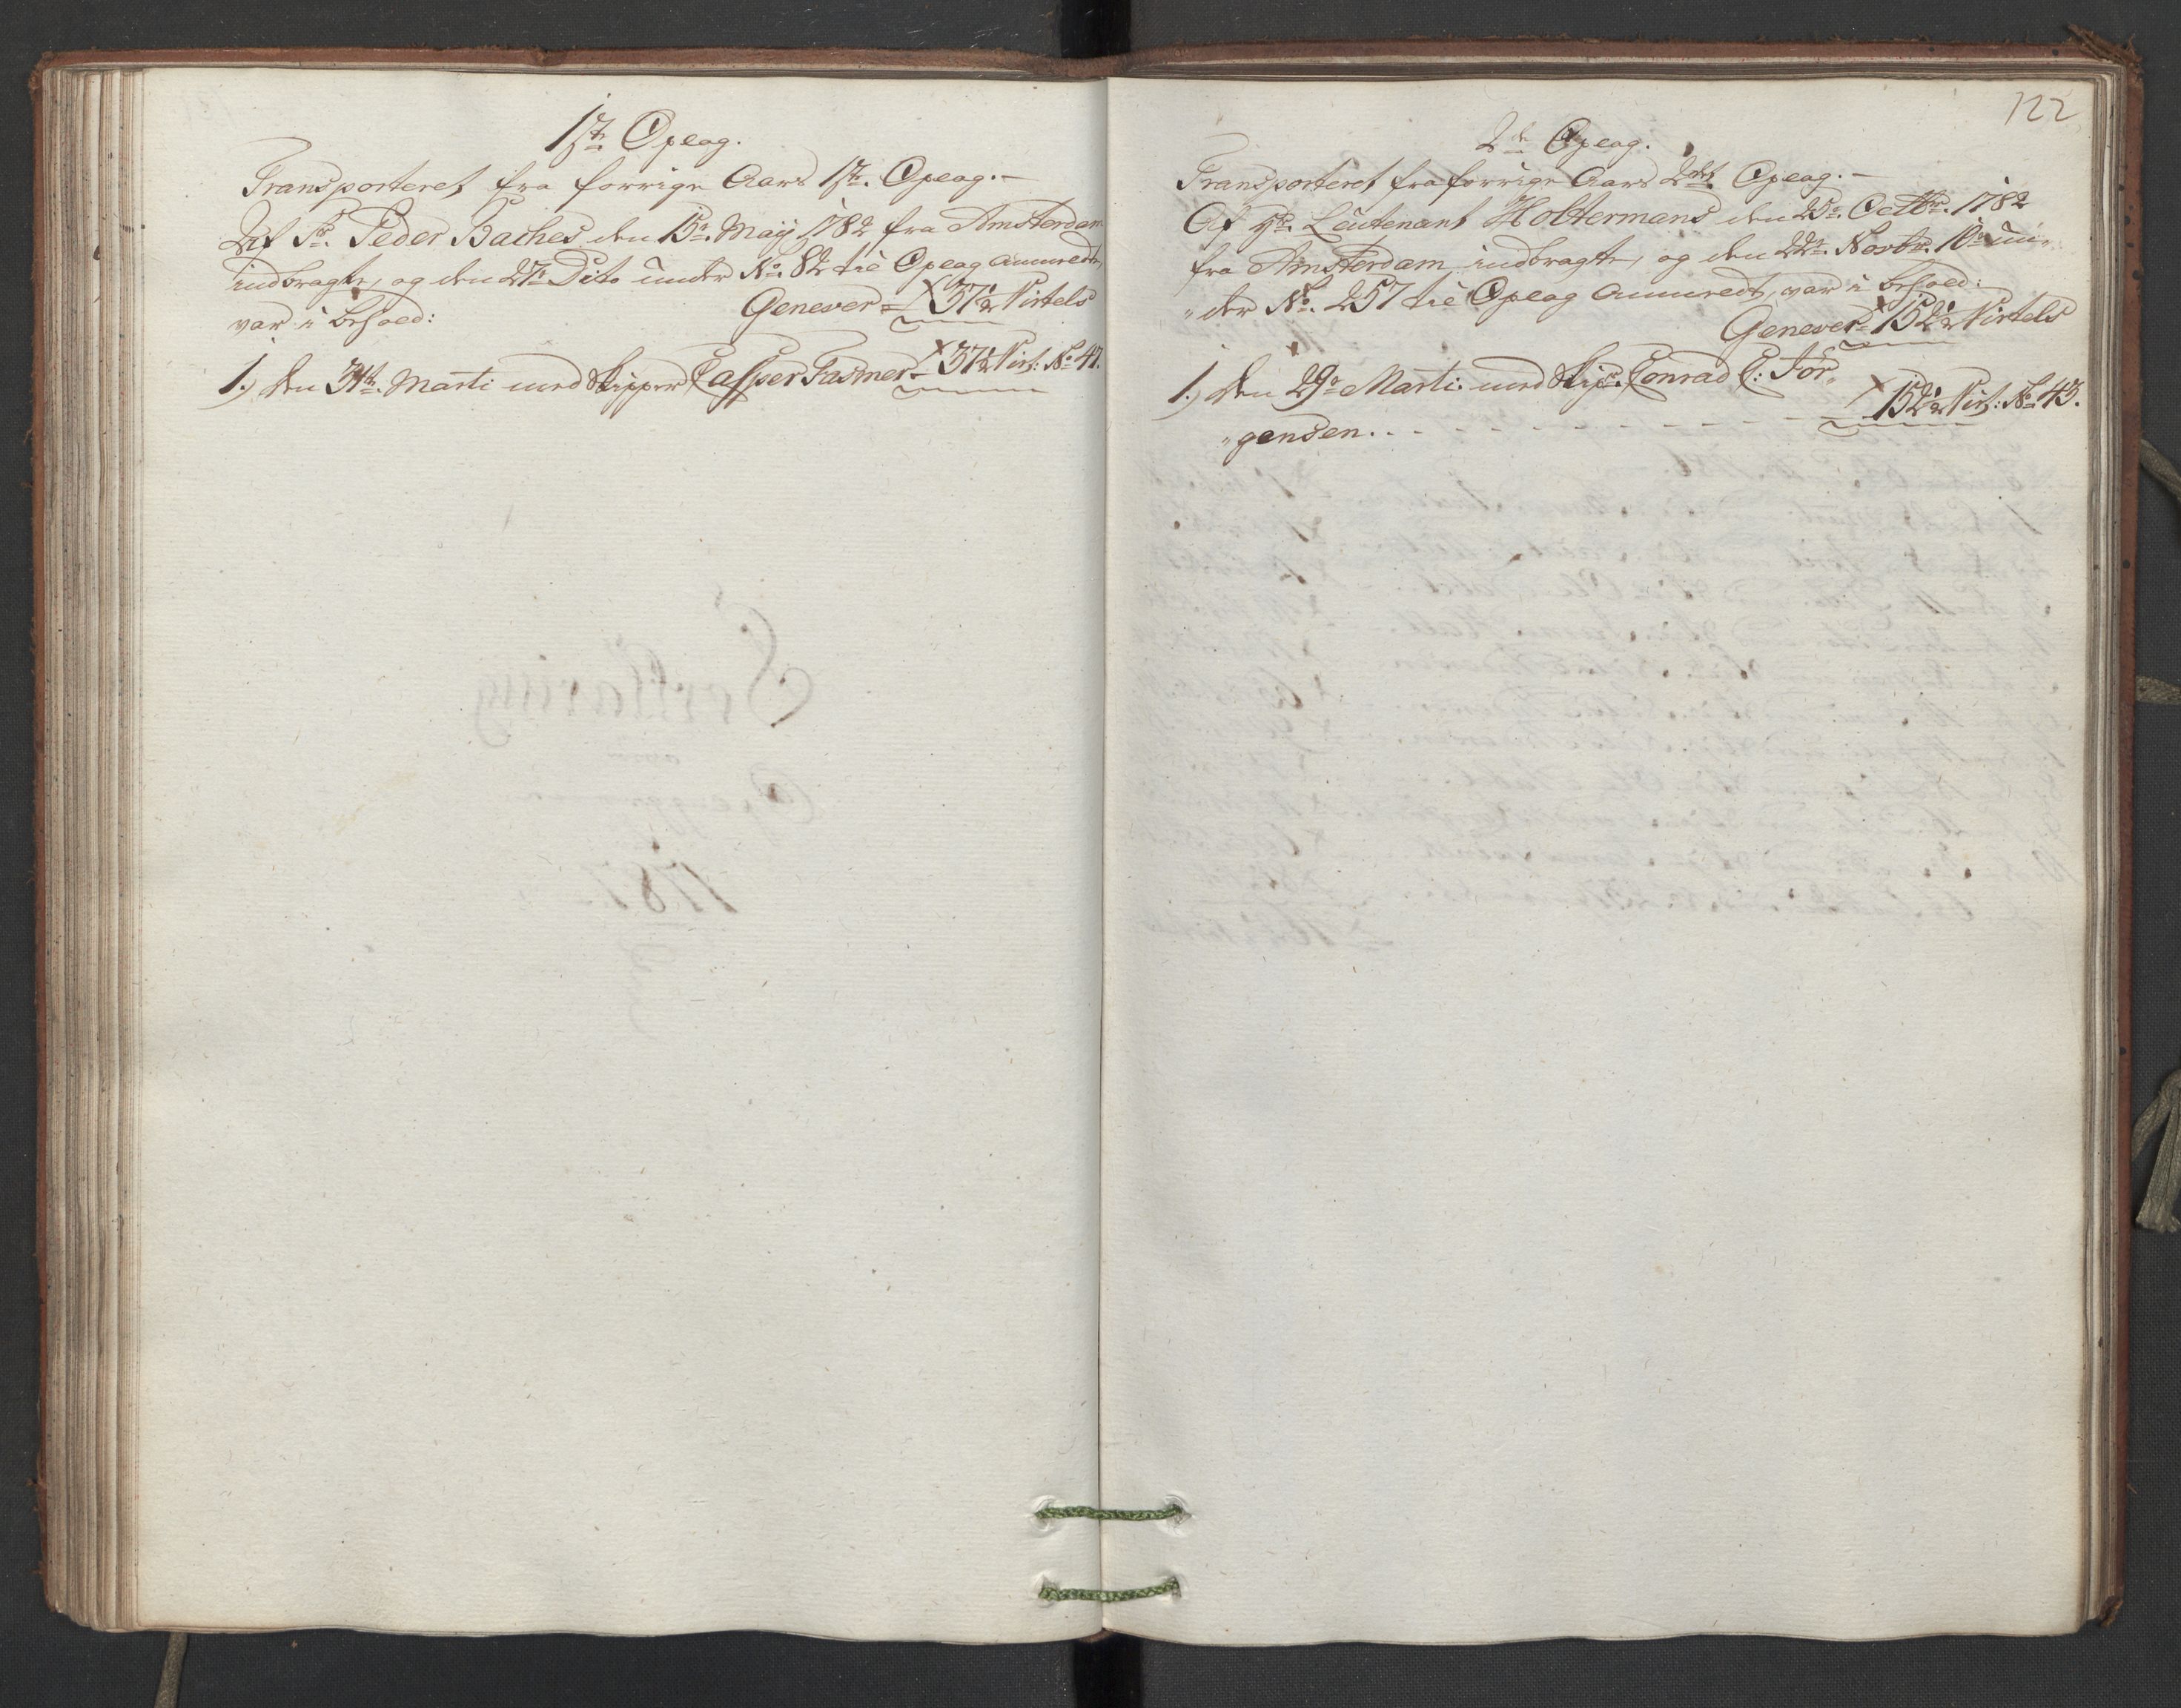 1ste Oplag.
Transporteret fra forrige Aars 1ste Oplag.-
Af Sr. Peder Baches den 15de May 1782 fra Amsterdam
indbragte, og den 27de Dito under No. 82 til Oplag anmeldte,
var i behold: Genever = 37½ Virtels
1.) den 31te Marti med Skipper Casper Fasmer - 37½ Virt: No 47.
122
2det Oplag.
Transporteret fra forrige Aars 2det Oplag.-
Af Hr. Leutenant Holtermans den 25de Octbr. 1782
fra Amsterdam indbragte, og den 22de Novbr. un-
"der No. 257 til Oplag anmeldt, var i behold:
Genever = 152½ Virtels
1.) den 29de Marti med Skipr. Conrad C: Jör-
"gensen. - - - - - - - - - - - - 152½ Virt: No. 43.